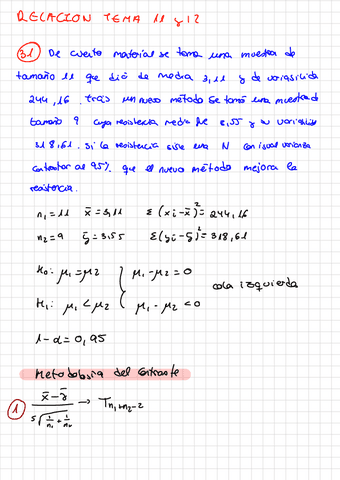 RELACION TEMA 11 y 12
3.1 De cierto material se toma una muestra de
tamaño 11 que dió de media 3,11 y de variabilidad
244,16. Tras un nuevo método se tomó una muestra de
tamaño 9 cuya resistencia media fue 3,55 y su variabilidad
318,61. Si la resistencia sigue una N con igual varianza
contrastar al 95% que el nuevo método mejora la
resistencia.
n₁ = 11 x̄ = 3,11 Σ(xi - x̄)² = 244,16
n₂ = 9 ȳ = 3,55 Σ(yi - ȳ)² = 318,61
H₀: μ₁ = μ₂ { μ₁ - μ₂ = 0
cola izquierda
H₁: μ₁ < μ₂ { μ₁ - μ₂ < 0
1 - α = 0,95
Metodología del Contraste
1 (x̄ - ȳ) / (s√(1/n₁ + 1/n₂)) → T n₁+n₂-2